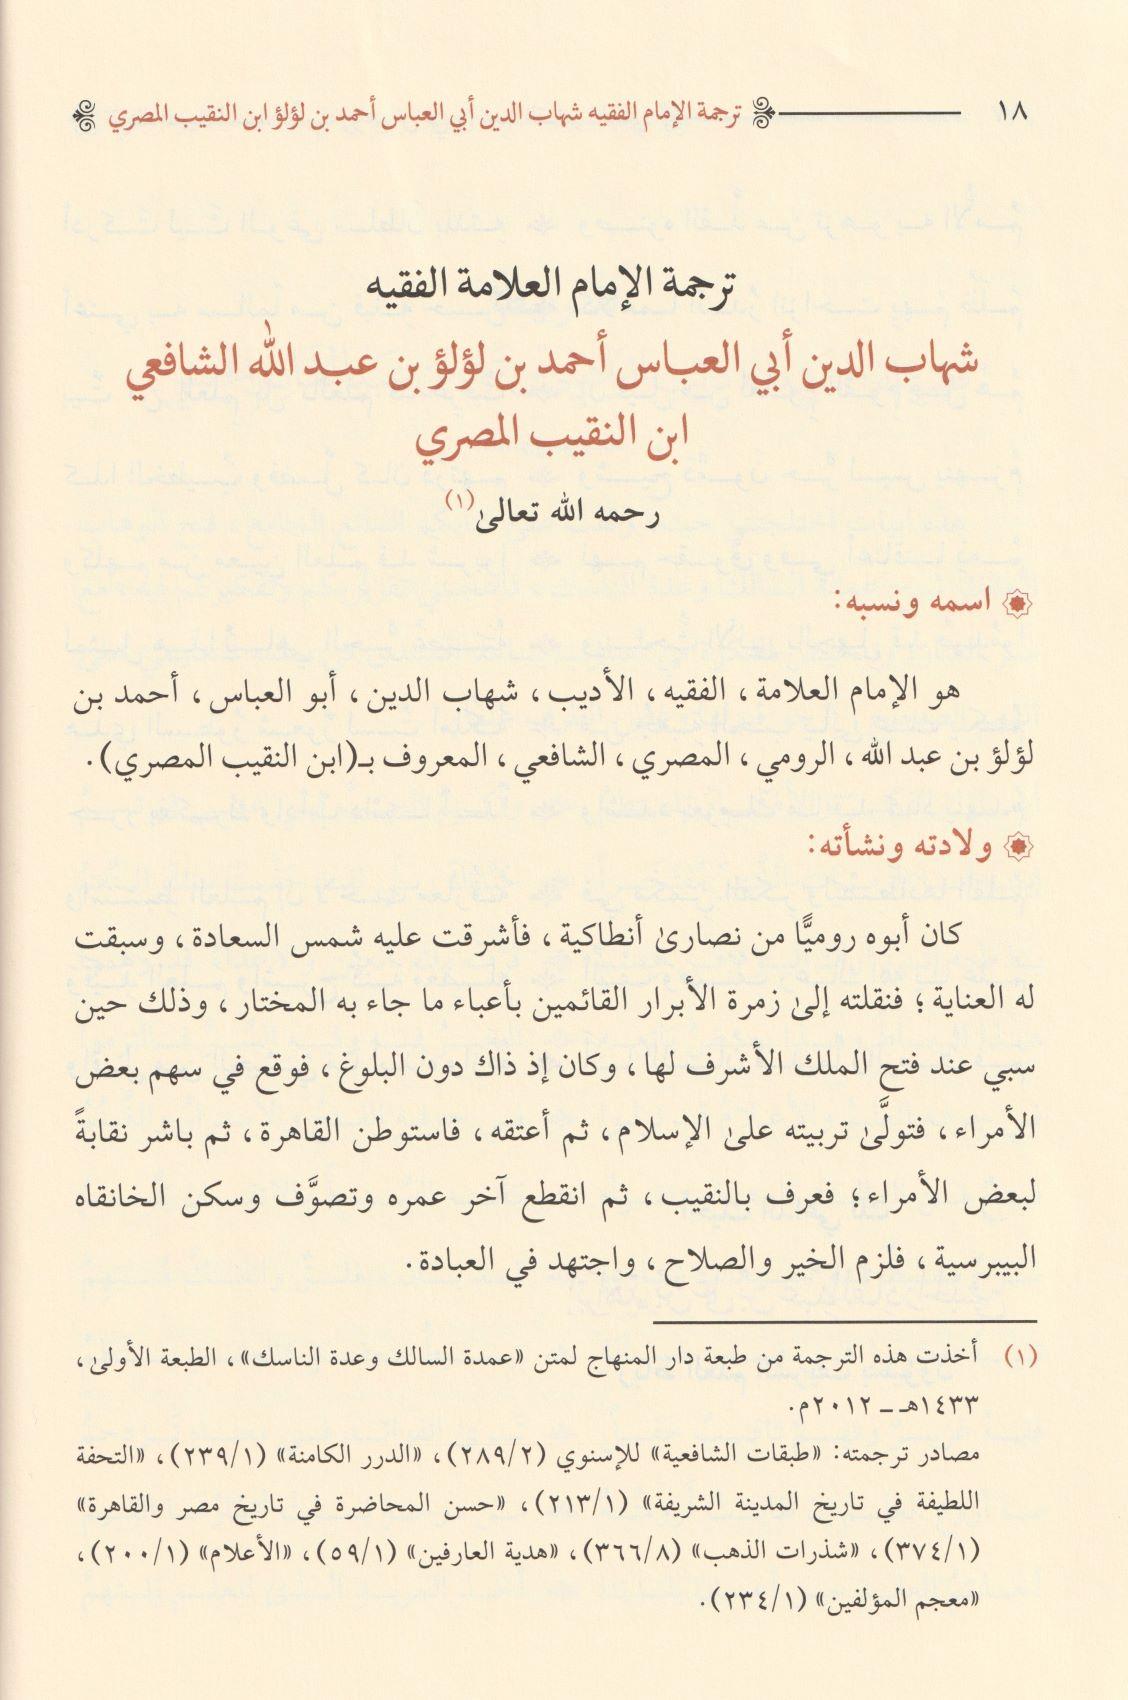 ١٨ ترجمة الإمام الفقيه شهاب الدين أبي العباس أحمد بن لؤلؤ ابن النقيب المصري
ترجمة الإمام العلامة الفقيه
شهاب الدين أبي العباس أحمد بن لؤلؤ بن عبد الله الشافعي
ابن النقيب المصري
رحمه الله تعالىٰ(١)
اسمه ونسبه:
هو الإمام العلامة، الفقيه، الأديب، شهاب الدين، أبو العباس، أحمد بن
لؤلؤ بن عبد الله، الرومي، المصري، الشافعي، المعروف بـ(ابن النقيب المصري).
ولادته ونشأته:
كان أبوه روميًّا من نصارىٰ أنطاكية، فأشرقت عليه شمس السعادة، وسبقت
له العناية؛ فنقلته إلىٰ زمرة الأبرار القائمين بأعباء ما جاء به المختار، وذلك حين
سبي عند فتح الملك الأشرف لها، وكان إذ ذاك دون البلوغ، فوقع في سهم بعض
الأمراء، فتولَّىٰ تربيته علىٰ الإسلام، ثم أعتقه، فاستوطن القاهرة، ثم باشر نقابةً
لبعض الأمراء؛ فعرف بالنقيب، ثم انقطع آخر عمره وتصوَّف وسكن الخانقاه
البيبرسية، فلزم الخير والصلاح، واجتهد في العبادة.
(١) أخذت هذه الترجمة من طبعة دار المنهاج لمتن «عمدة السالك وعدة الناسك»، الطبعة الأولىٰ،
١٤٣٣هـ ـ ٢٠١٢م.
مصادر ترجمته: «طبقات الشافعية» للإسنوي (٢/٢٨٩)، «الدرر الكامنة» (١/٢٣٩)، «التحفة
اللطيفة في تاريخ المدينة الشريفة» (١/٢١٣)، «حسن المحاضرة في تاريخ مصر والقاهرة»
(١/٣٧٤)، «شذرات الذهب» (٨/٣٦٦)، «هدية العارفين» (١/٥٩)، «الأعلام» (١/٢٠٠)،
«معجم المؤلفين» (١/٢٣٤).